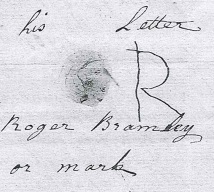 his Letter
R
Roger Bramley
or mark